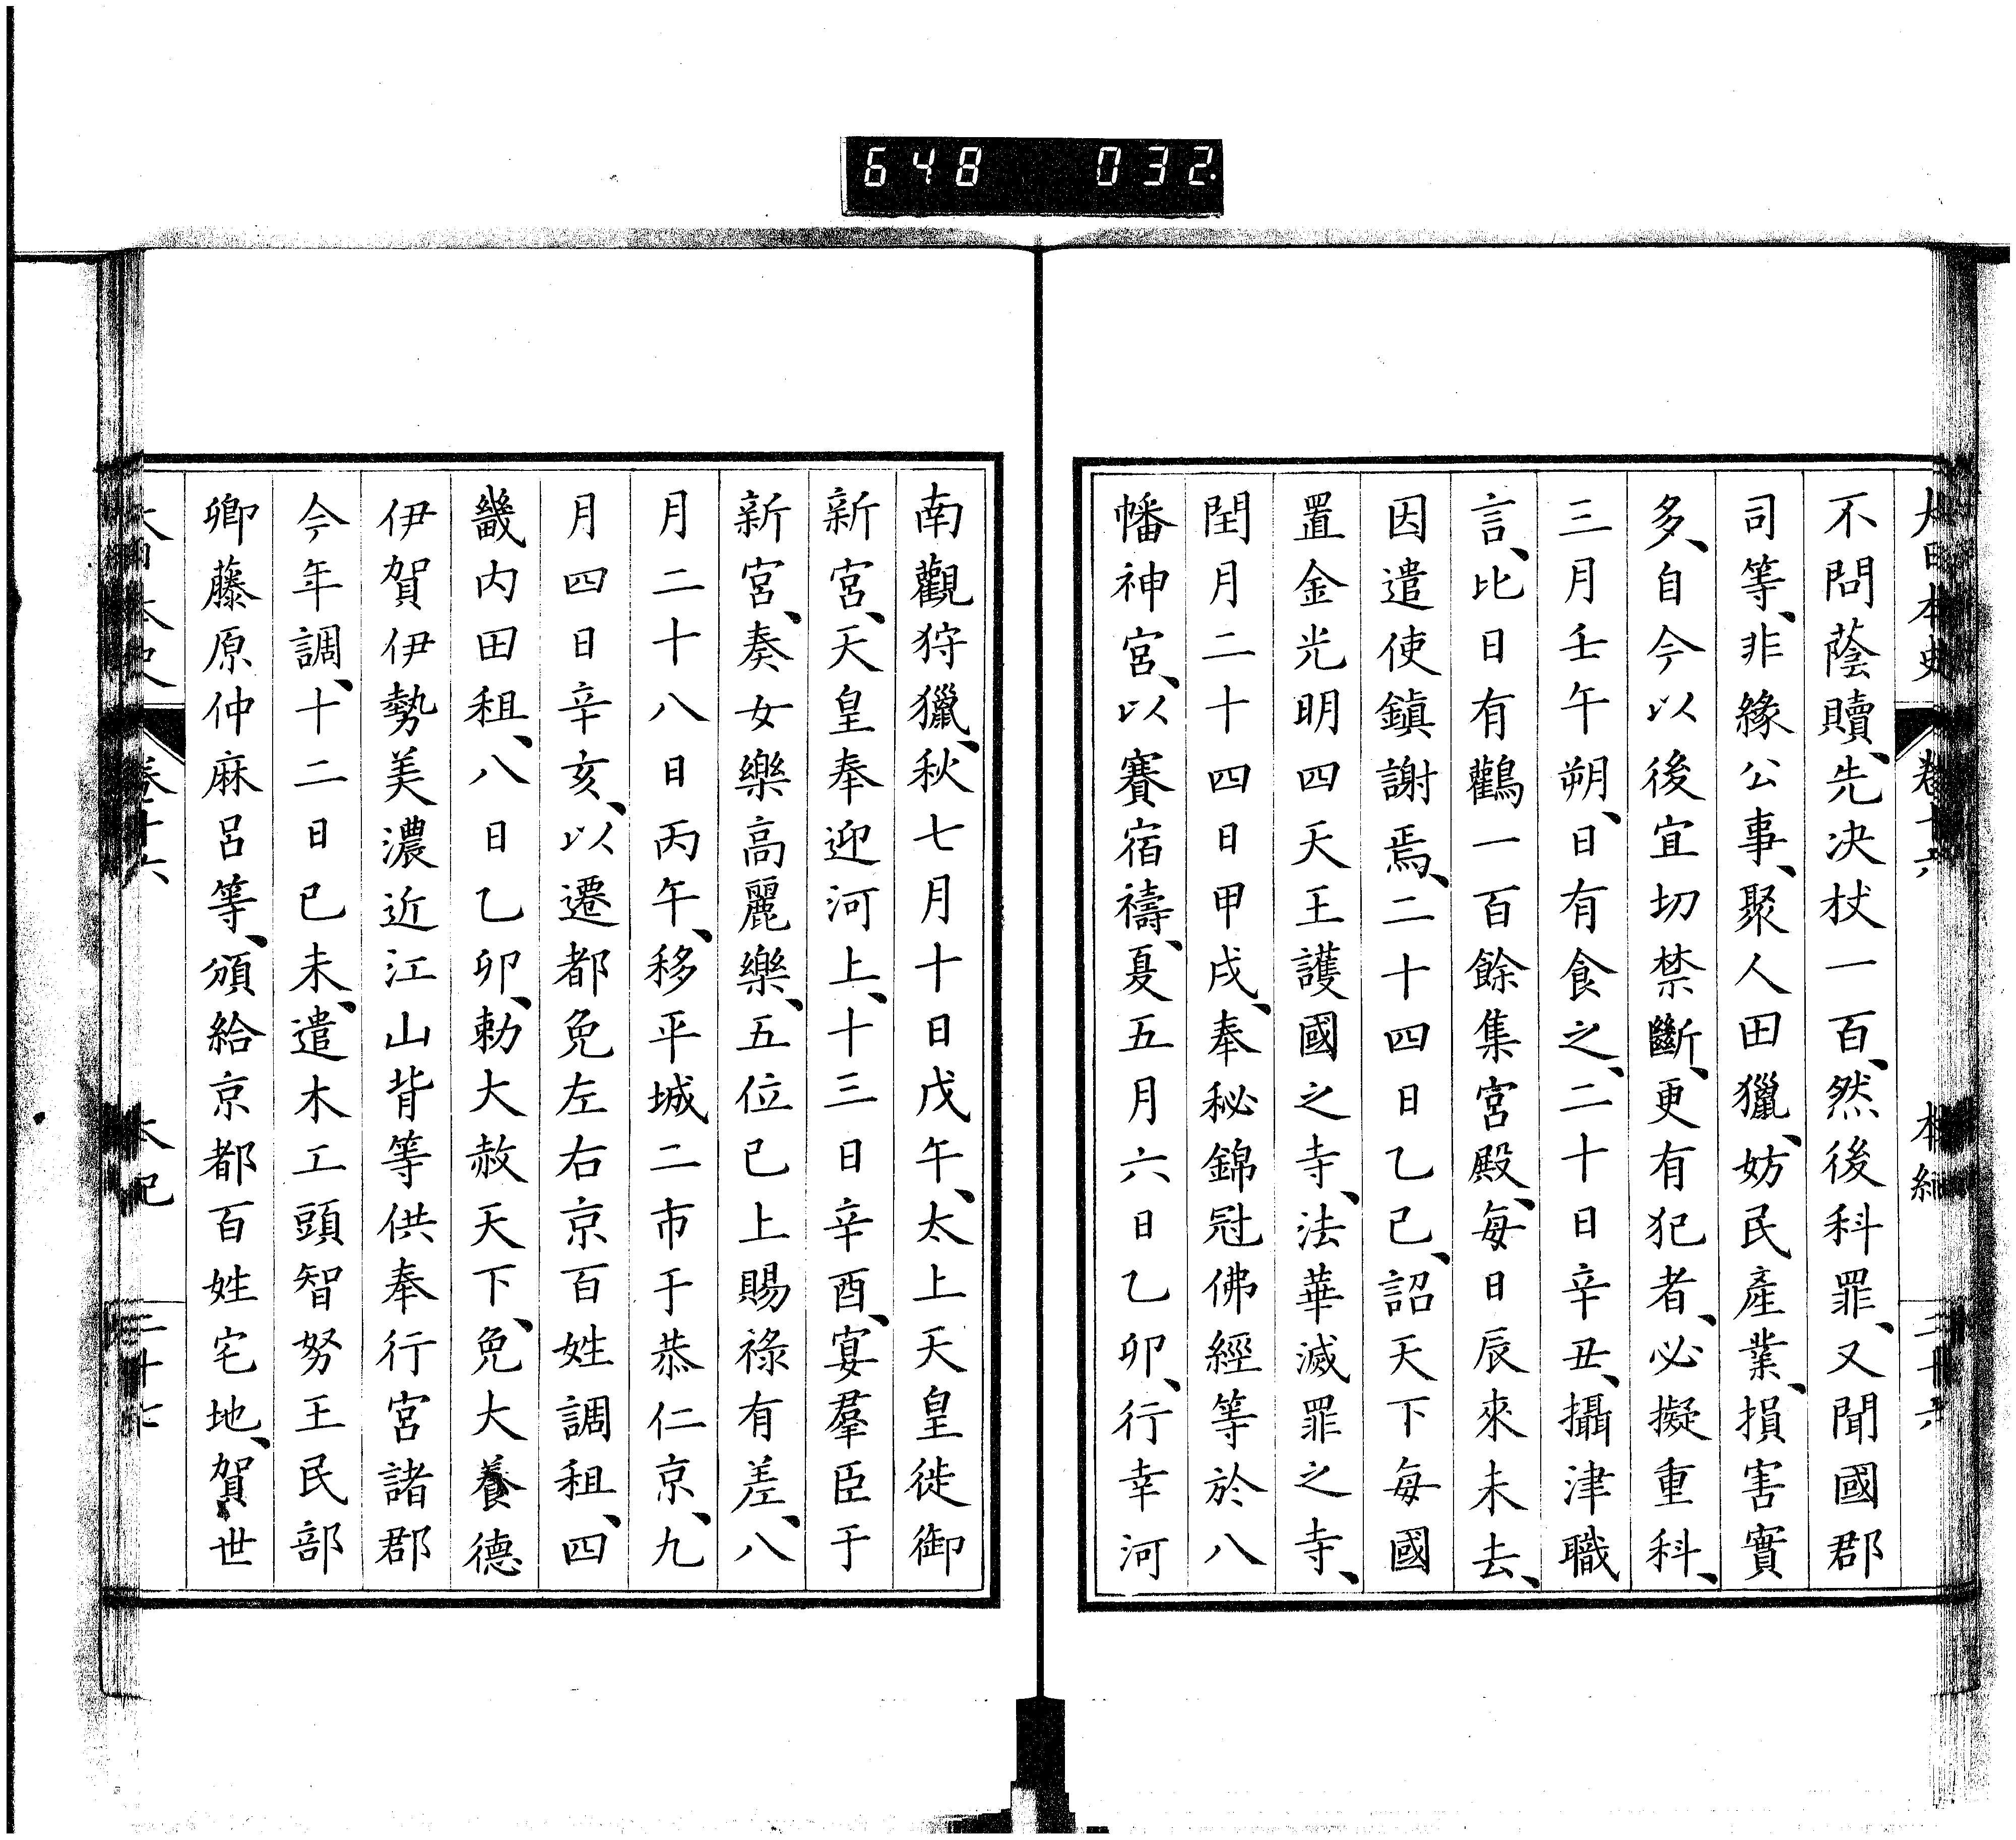 648 032.
大日本史 卷十六 本紀 二十六
不問蔭贖、先決杖一百、然後科罪、又聞國郡
司等、非緣公事、聚人田獵、妨民產業、損害實
多、自今以後宜切禁斷、更有犯者、必擬重科、
三月壬午朔、日有食之、二十日辛丑、攝津職
言、比日有鸛一百餘集宮殿、每日辰來未去、
因遣使鎮謝焉、二十四日乙巳、詔天下每國
置金光明四天王護國之寺、法華滅罪之寺、
閏月二十四日甲戌、奉秘錦冠佛經等於八
幡神宮、以賽宿禱、夏五月六日乙卯、行幸河
南觀狩獵、秋七月十日戊午、太上天皇徙御
新宮、天皇奉迎河上、十三日辛酉、宴羣臣于
新宮、奏女樂高麗樂、五位已上賜祿有差、八
月二十八日丙午、移平城二市于恭仁京、九
月四日辛亥、以遷都免左右京百姓調租、四
畿内田租、八日乙卯、勅大赦天下、免大養德
伊賀伊勢美濃近江山背等供奉行宮諸郡
今年調、十二日己未、遣木工頭智努王民部
卿藤原仲麻呂等、頒給京都百姓宅地、賀世
大日本史 卷十六 本紀 二十七